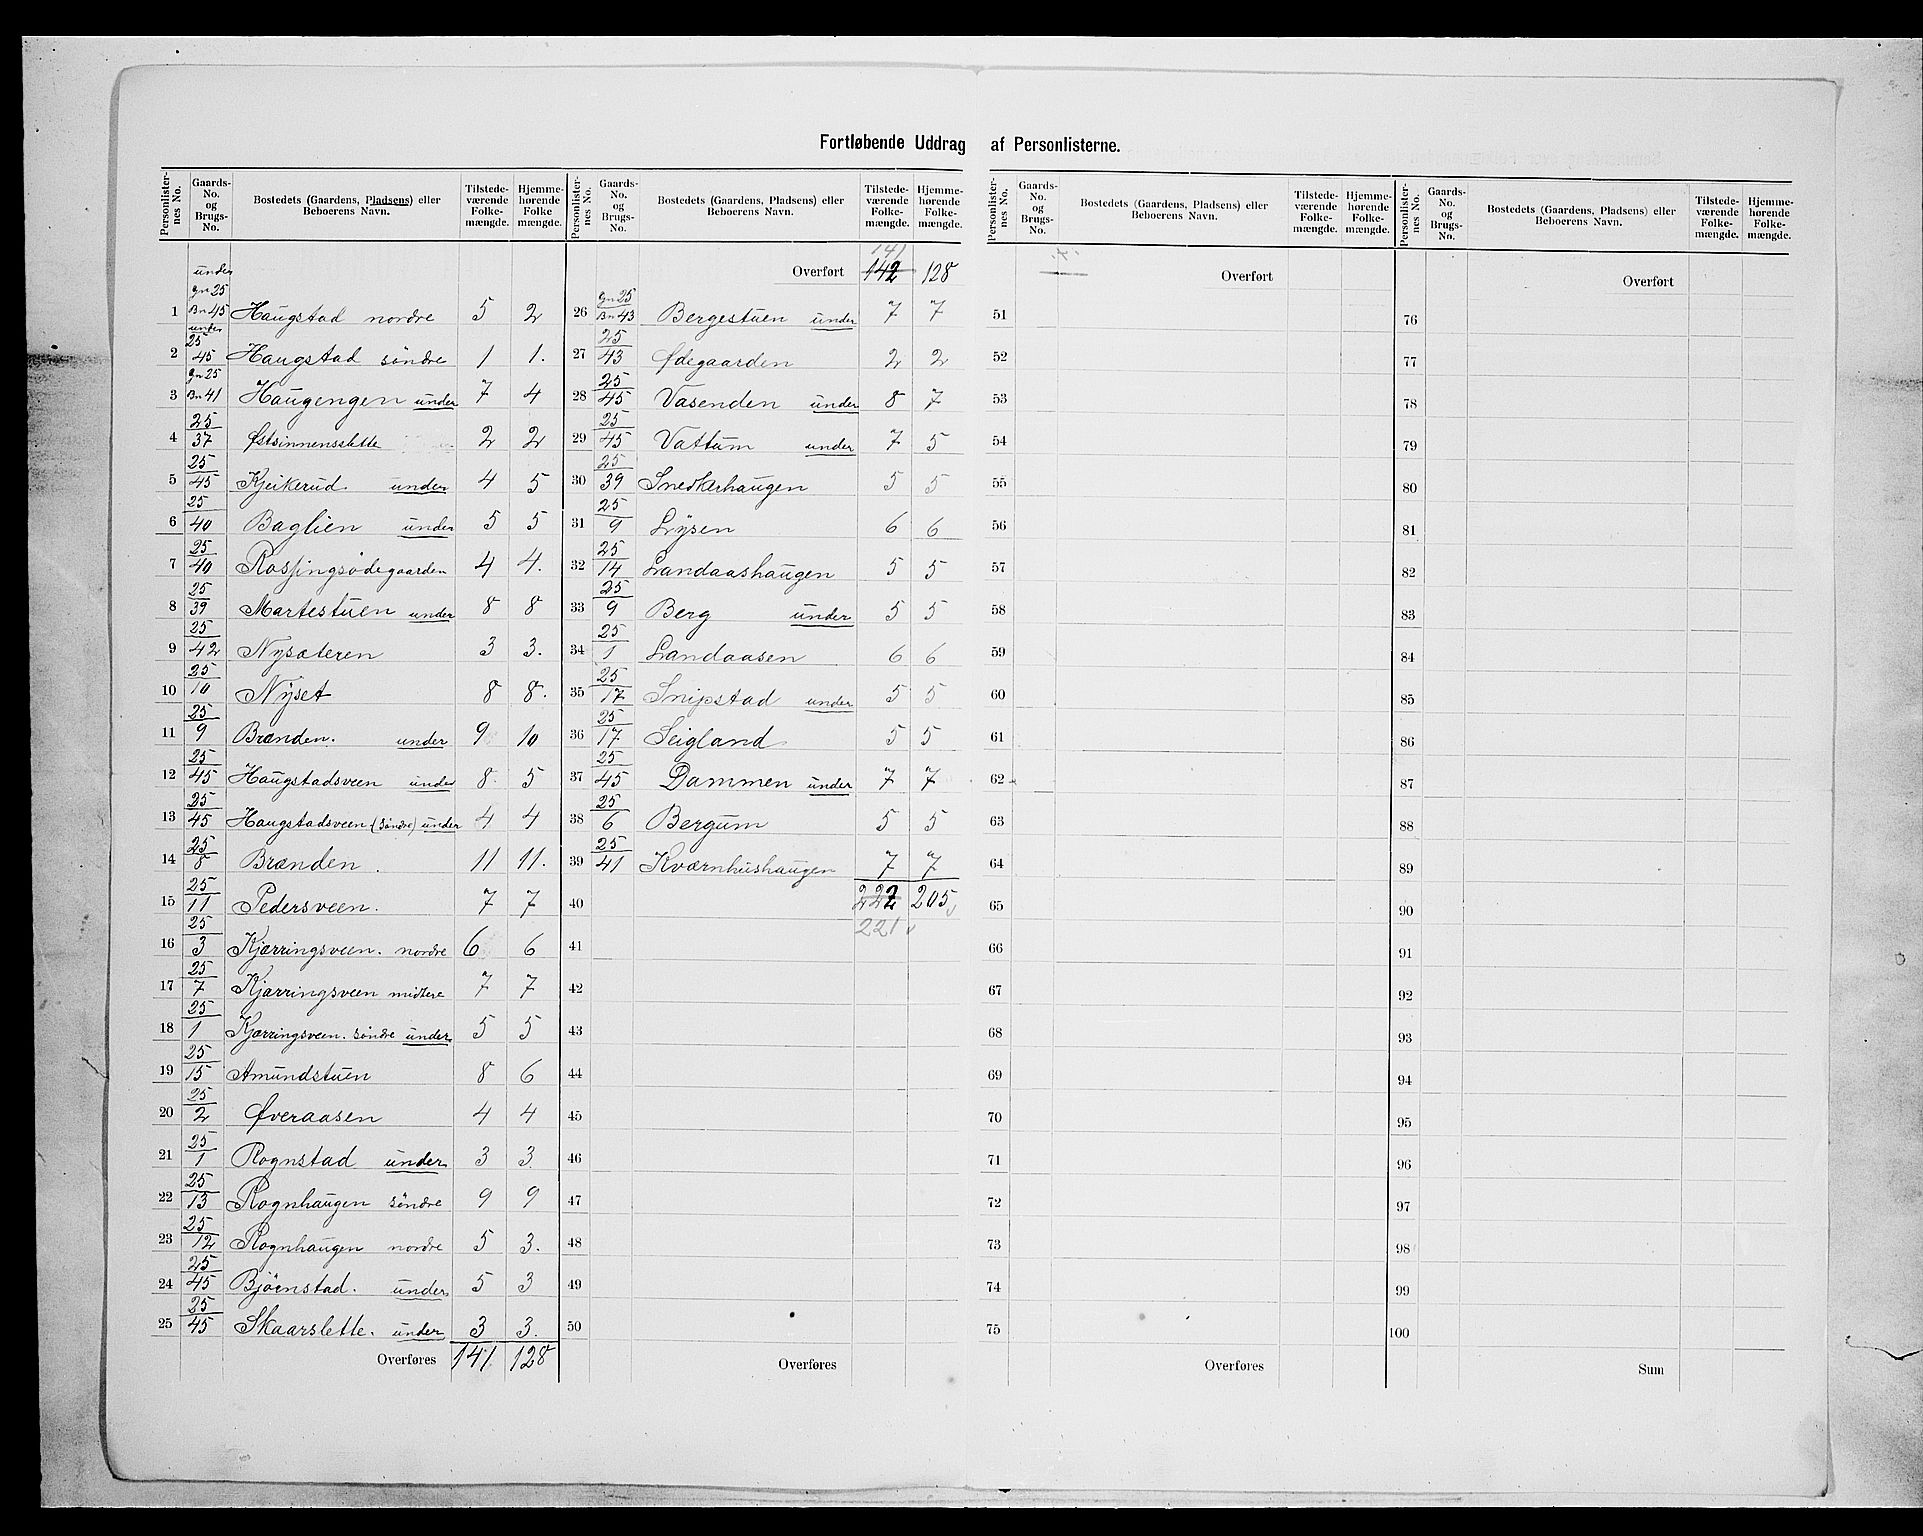 Fortløbende Uddrag af Personlisterne.
Personlister-nes No. | Gaards-No. og Brugs-No. | Bostedets (Gaardens, Pladsens) eller Beboerens Navn. | Tilstede-værende Folke-mængde. | Hjemme-hørende Folke mængde.
1 under gn 25 Bn 45 Haugstad nordre 5 2
2 under 25 45 Haugstad söndre 1 1.
3 gn 25 Bn 41 Haugengen under 7 4
4 25 37 Østsinnensslette 2 2
5 25 45 Kjeikerud under 4 5
6 25 40 Baglien under 5 5
7 25 40 Rossingsödegaarden 4 4.
8 25 39 Martestuen under 8 8
9 25 42 Nysæteren 3 3.
10 25 10 Nyset 8 8.
11 25 9 Brænden. under 9 10
12 25 45 Haugstadsveen under 8 5
13 25 45 Haugstadsveen (söndre) under 4 4
14 25 8 Brænden. 11 11.
15 25 11 Pedersveen. 7 7
16 25 3 Kjærringsveen. nordre 6 6
17 25 7 Kjærringsveen midtre 7 7
18 25 1 Kjærringsveen. söndre under 5 5
19 25 15 Amundstuen 8 6
20 25 2 Øveraasen 4 4
21 25 1 Rognstad under 3 3
22 25 13 Rognhaugen söndre 9 9
23 25 12 Rognhaugen nordre 5 3.
24 25 45 Bjöenstad. under 5 3
25 25 45 Skaarslette. under 3 3.
Overføres 141 128
Personlister-nes No. | Gaards-No. og Brugs-No. | Bostedets (Gaardens, Pladsens) eller Beboerens Navn. | Tilstede-værende Folke-mængde. | Hjemme-hørende Folke-mængde.
141
Overført 142 128
26 gn 25 Bn 43 Bergestuen under 7 7
27 25 43 Ødegaarden 2 2
28 25 45 Vasenden under 8 7
29 25 45 Vattum under 7 5
30 25 39 Snedkerhaugen 5 5
31 25 9 Lysen 6 6
32 25 14 Landaashaugen 5 5
33 25 9 Berg under 5 5
34 25 1 Landaasen 6 6
35 25 17 Snipstad under 5 5
36 25 17 Seigland 5 5
37 25 45 Dammen under 7 7
38 25 6 Bergum 5 5
39 25 41 Kværnhushaugen 7 7
40 222 205
221
41
42
43
44
45
46
47
48
49
50
Overføres
Personlister-nes No. | Gaards-No. og Brugs-No. | Bostedets (Gaardens, Pladsens) eller Beboerens Navn. | Tilstede-værende Folke-mængde. | Hjemme-hørende Folke-mængde.
Overført
51
52
53
54
55
56
57
58
59
60
61
62
63
64
65
66
67
68
69
70
71
72
73
74
75
Overføres
Personlister-nes No. | Gaards-No. og Brugs-No. | Bostedets (Gaardens, Pladsens) eller Beboerens Navn. | Tilstede-værende Folke-mængde. | Hjemme-hørende Folke-mængde.
Overført
76
77
78
79
80
81
82
83
84
85
86
87
88
89
90
91
92
93
94
95
96
97
98
99
100
Sum